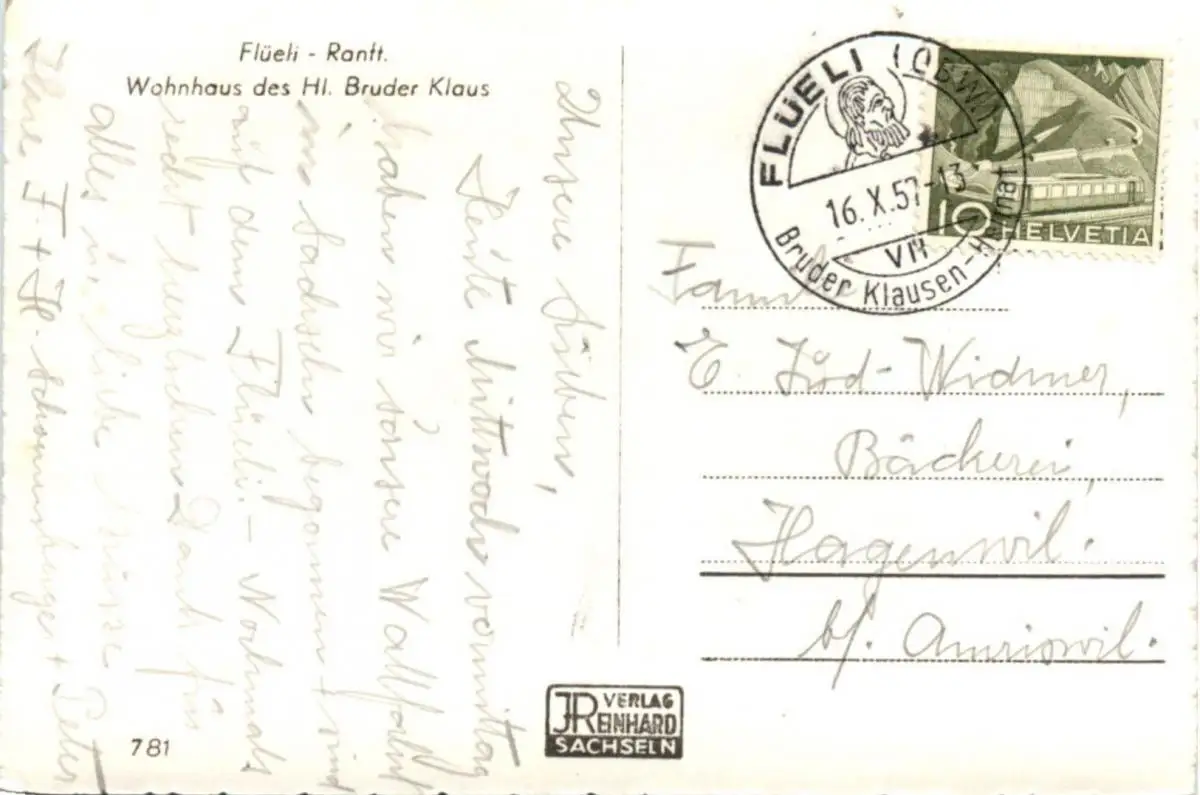 Flüeli - Ranft.
Wohnhaus des Hl. Bruder Klaus
Unsere Lieben,
Heute Mittwoch vormittag
haben wir unsere Wallfahrt
in Sachseln begonnen + sind
auf dem Flüeli. - Nochmals
recht herzlichen Dank für
alles liebe Grüsse
Ihre F. + H. + Peter
781
VERLAG
JREINHARD
SACHSELN
FLÜELI (OBW.)
16.X.57-13
VII
Bruder Klausen-Heimat
10 HELVETIA
Familie
E. Jud-Widmer,
Bäckerei,
Hagenwil.
b/. Amriswil.